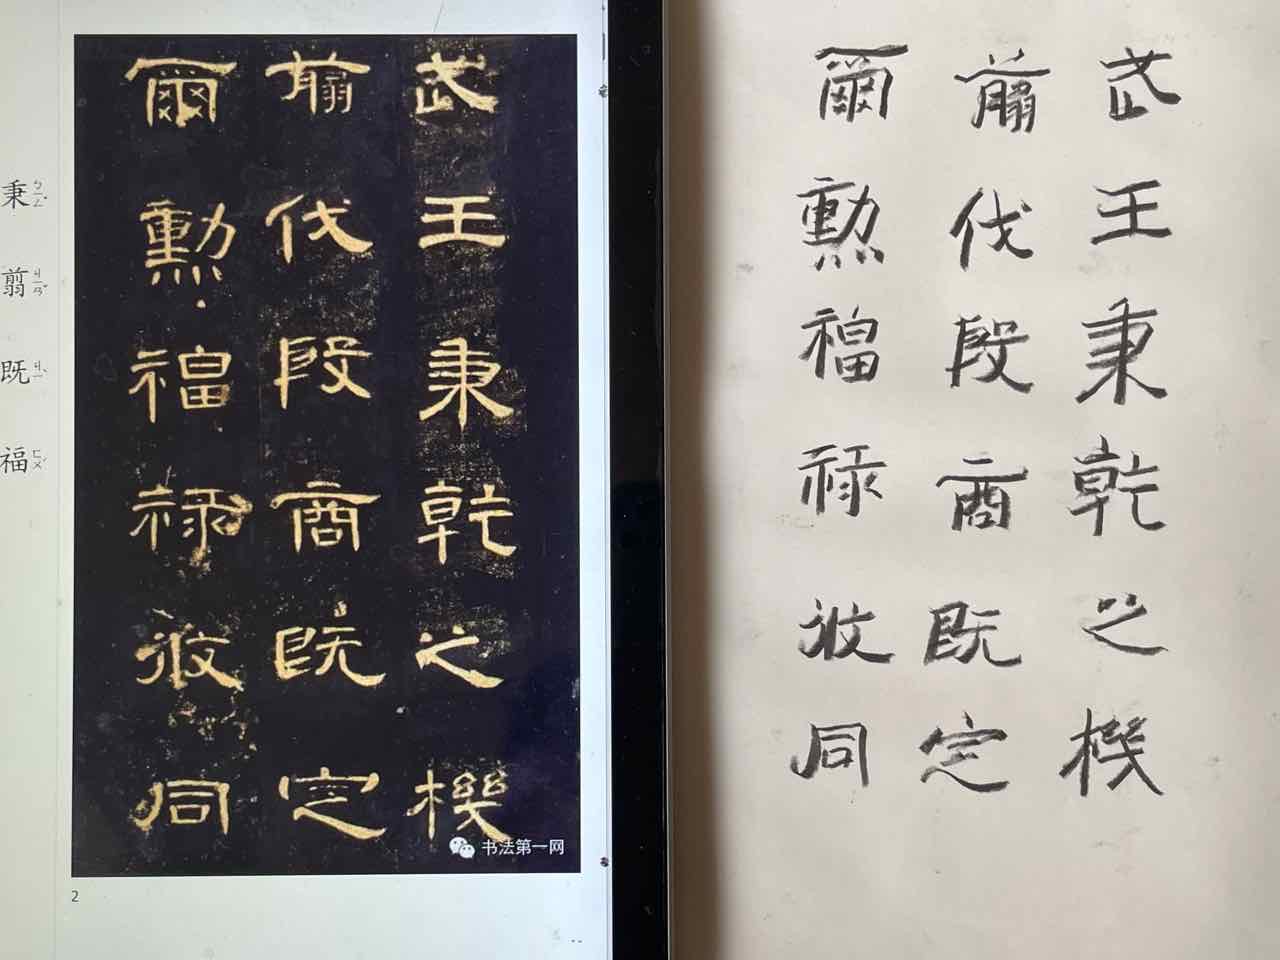 秉 ㄅㄧㄥˇ
翦 ㄐㄧㄢˇ
既 ㄐㄧˋ
福 ㄈㄨˊ
武王秉乾之機
翦伐殷商既定
爾勳福祿攸同
书法第一网
2
武王秉乾之機
翦伐殷商既定
爾勳福祿攸同